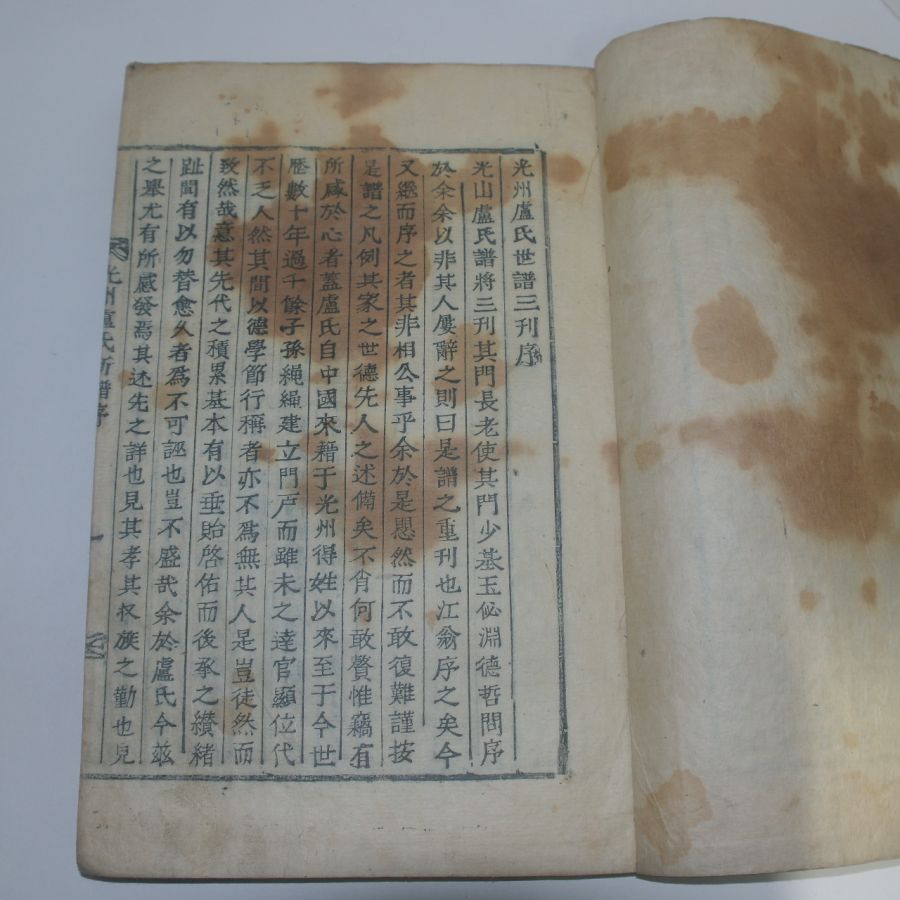 光州盧氏世譜三刊序
光山盧氏譜將三刊其門長老使其門少基玉佖淵德哲問序
於余余以非其人屢辭之則曰是譜之重刊也江翁序之矣今
又繼而序之者其非相公事乎余於是愳然而不敢復難謹按
是譜之凡例其家之世德先人之述備矣不肯何敢贅惟竊有
所感於心者蓋盧氏自中國來籍于光州得姓以來至于今世
歷數十年過千餘子孫繩繩建立門戶而雖未之達官顯位代
不乏人然其間以德學節行稱者亦不爲無其人是豈徒然而
致然哉意其先代之積累基本有以垂貽啓佑而後承之纘緖
趾間有以勿替愈久者爲不可誣也豈不盛哉余於盧氏今玆
之擧尤有所感發焉其述先之詳也見其孝其收族之勤也見
光州盧氏世譜序
一